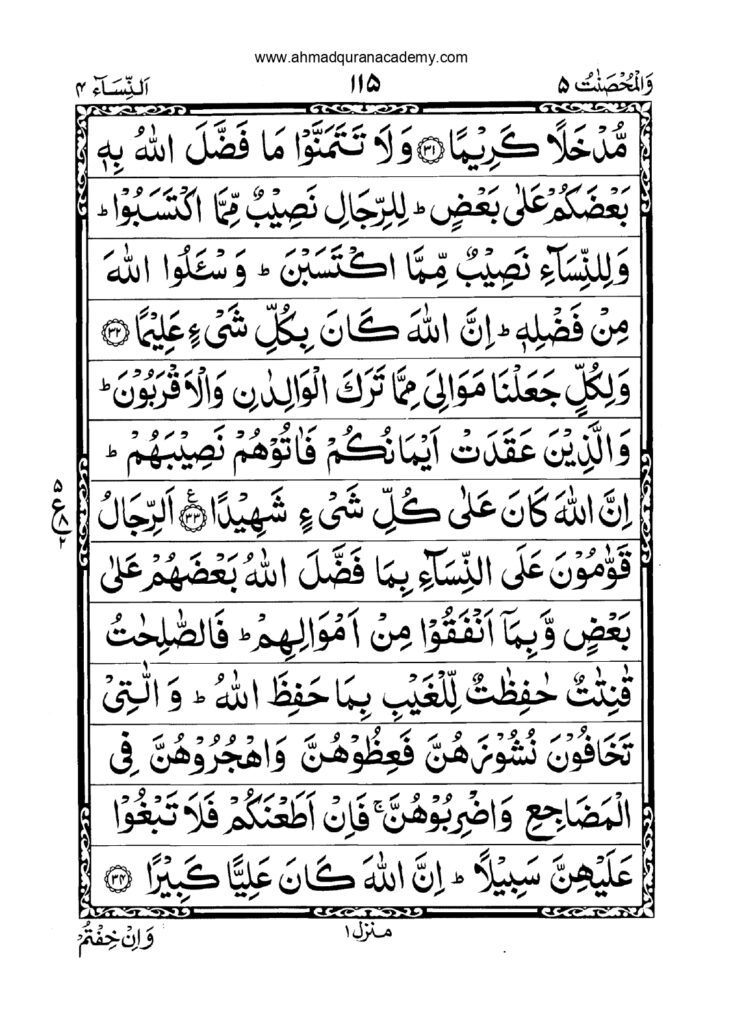 www.ahmadquranacademy.com
وَالْمُحْصَنٰتُ ۵
۱۱۵
اَلنِّسَآء ۴
مُّدْخَلًا كَرِيْمًا ﴿۳۱﴾ وَلَا تَتَمَنَّوْا مَا فَضَّلَ اللّٰهُ بِهٖ
بَعْضَكُمْ عَلٰى بَعْضٍ ؕ لِلرِّجَالِ نَصِيْبٌ مِّمَّا اكْتَسَبُوْا ؕ
وَلِلنِّسَآءِ نَصِيْبٌ مِّمَّا اكْتَسَبْنَ ؕ وَسْـَٔلُوا اللّٰهَ
مِنْ فَضْلِهٖ ؕ اِنَّ اللّٰهَ كَانَ بِكُلِّ شَىْءٍ عَلِيْمًا ﴿۳۲﴾
وَلِكُلٍّ جَعَلْنَا مَوَالِىَ مِمَّا تَرَكَ الْوَالِدٰنِ وَالْاَقْرَبُوْنَ ؕ
وَالَّذِيْنَ عَقَدَتْ اَيْمَانُكُمْ فَاٰتُوْهُمْ نَصِيْبَهُمْ ؕ
اِنَّ اللّٰهَ كَانَ عَلٰى كُلِّ شَىْءٍ شَهِيْدًا ﴿۳۳﴾ ع اَلرِّجَالُ
۵ ع ۸ ۲
قَوّٰمُوْنَ عَلَى النِّسَآءِ بِمَا فَضَّلَ اللّٰهُ بَعْضَهُمْ عَلٰى
بَعْضٍ وَّبِمَآ اَنْفَقُوْا مِنْ اَمْوَالِهِمْ ؕ فَالصّٰلِحٰتُ
قٰنِتٰتٌ حٰفِظٰتٌ لِّلْغَيْبِ بِمَا حَفِظَ اللّٰهُ ؕ وَالّٰتِىْ
تَخَافُوْنَ نُشُوْزَهُنَّ فَعِظُوْهُنَّ وَاهْجُرُوْهُنَّ فِى
الْمَضَاجِعِ وَاضْرِبُوْهُنَّ ۚ فَاِنْ اَطَعْنَكُمْ فَلَا تَبْغُوْا
عَلَيْهِنَّ سَبِيْلًا ؕ اِنَّ اللّٰهَ كَانَ عَلِيًّا كَبِيْرًا ﴿۳۴﴾
منزل ۱
وَاِنْ خِفْتُمْ